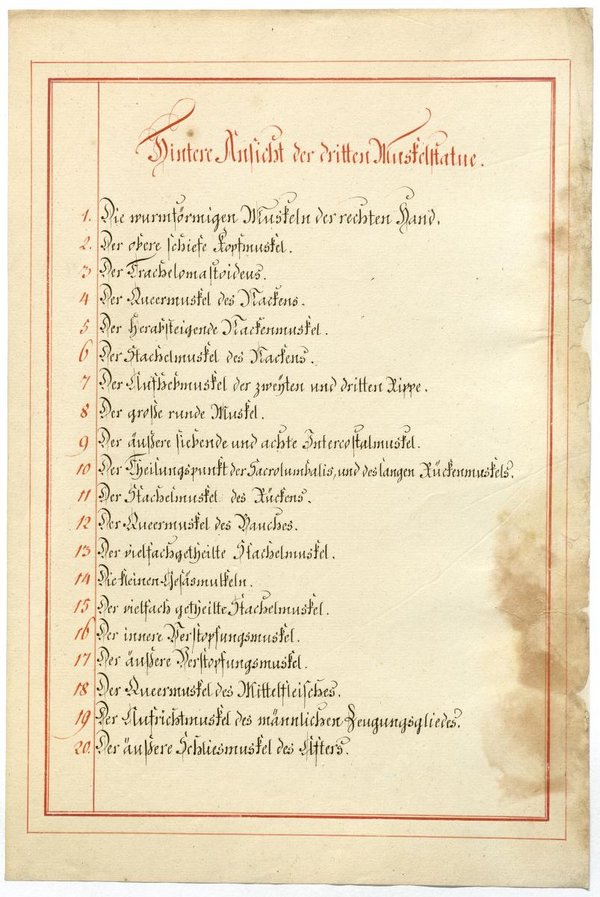 Hintere Ansicht der dritten Muskelstatue.
1. Die wurmförmigen Muskeln der rechten Hand.
2. Der obere schiefe Kopfmuskel.
3 Der Trachelomastoideus.
4 Der Queermuskel des Nackens.
5 Der herabsteigende Nackenmuskel.
6 Der Stachelmuskel des Nackens.
7 Der Aufhebmuskel der zweyten und dritten Rippe.
8 Der große runde Muskel.
9 Der äußere siebende und achte Intercostalmuskel.
10 Der Theilungspunkt der Sacrolumbalis, und des langen Rückenmuskels.
11 Der Stachelmuskel des Rückens.
12 Der Queermuskel des Bauches.
13 Der vielfachgetheilte Stachelmuskel.
14 Die kleinen Gesäsmulkeln.
15 Der vielfach getheilte Stachelmuskel.
16 Der innere Verstopfungsmuskel.
17 Der äußere Verstopfungsmuskel.
18 Der Queermuskel des Mittelfleisches.
19 Der Aufrichtmuskel des männlichen Zeugungsgliedes.
20. Der äußere Schliesmuskel des Afters.